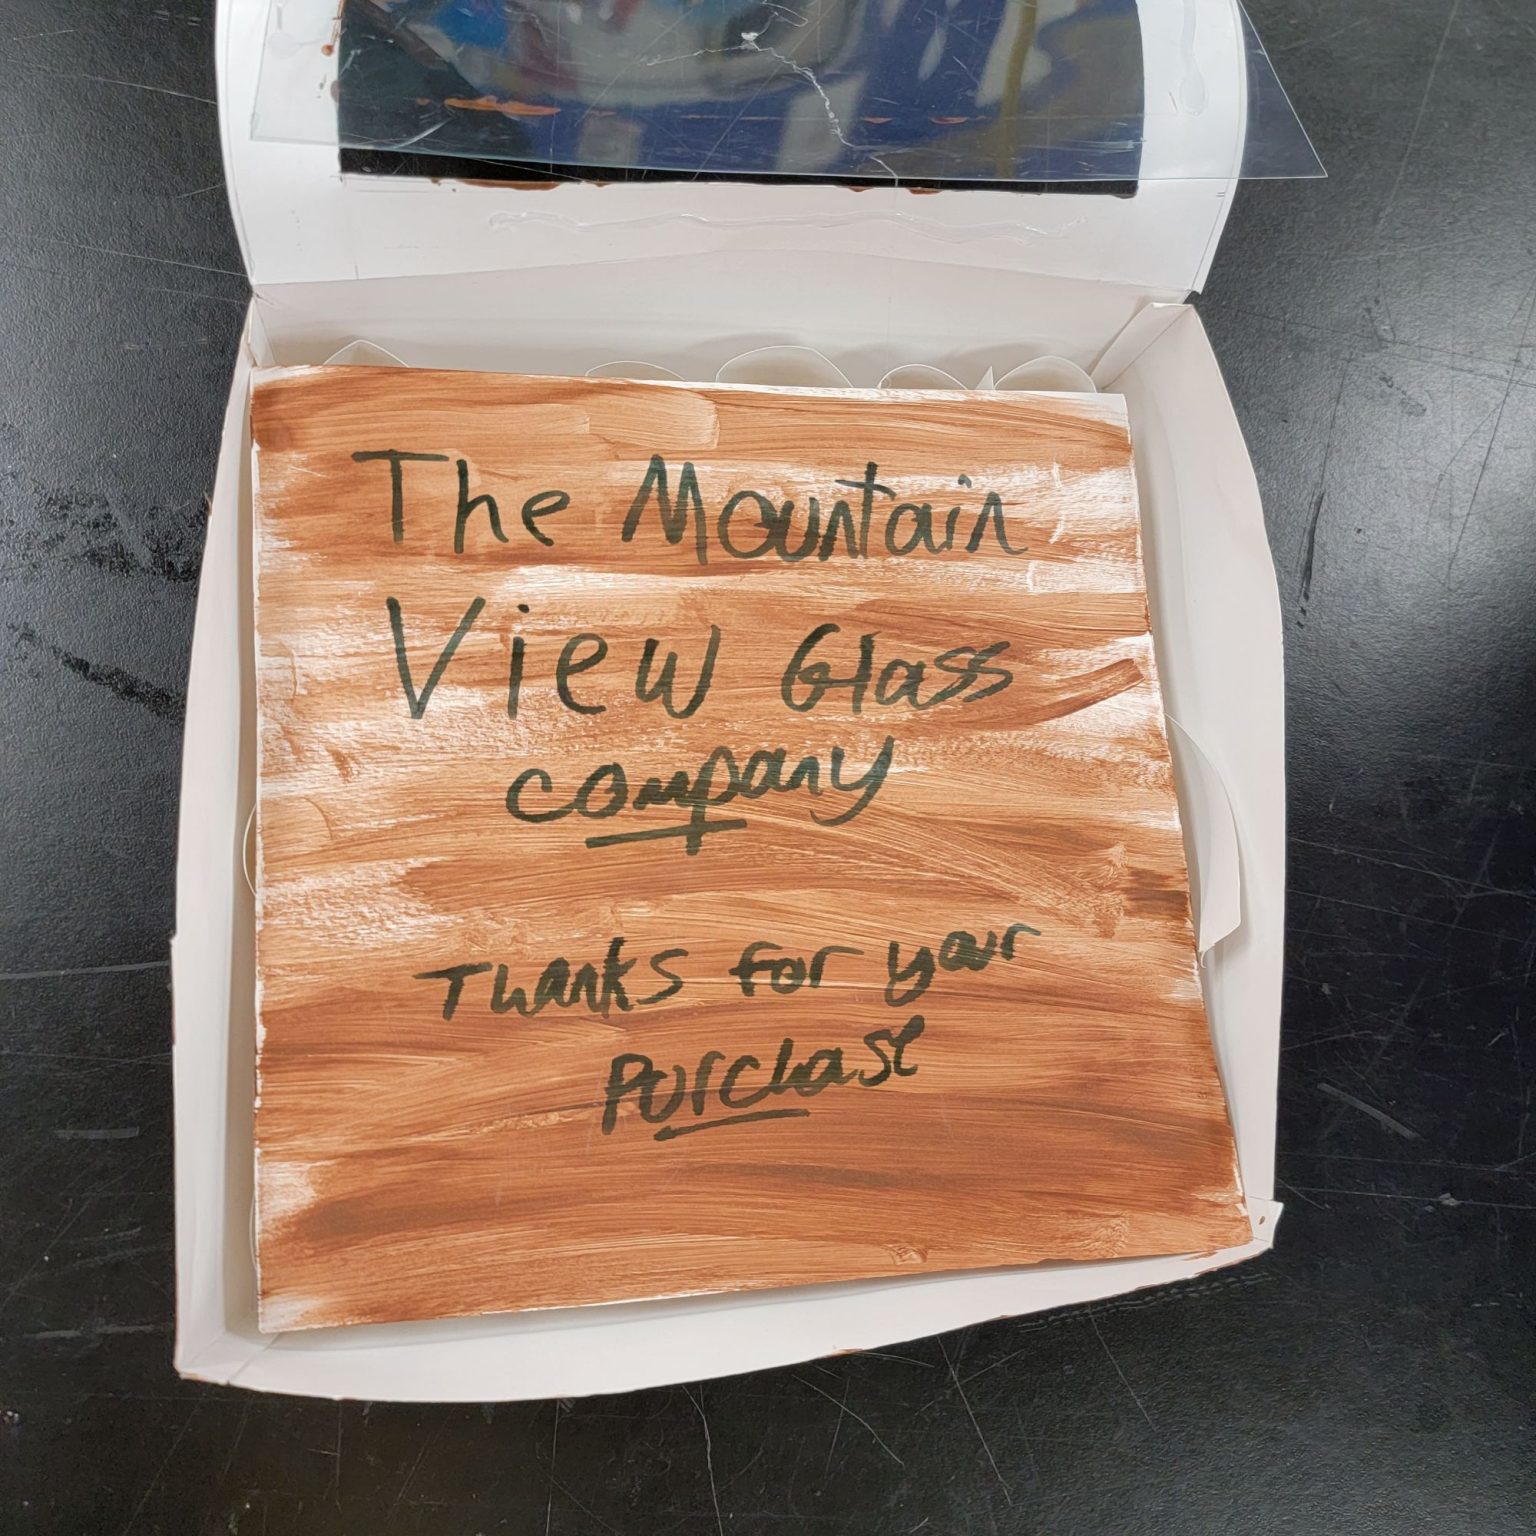 The Mountain
View Glass
company
Thanks for your
Purchase